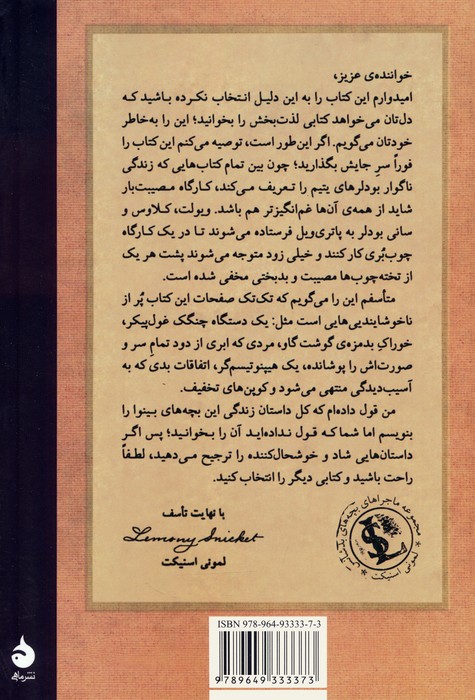 خواننده‌ی عزیز،
امیدوارم این کتاب را به این دلیل انتخاب نکرده باشید که
دل‌تان می‌خواهد کتابی لذت‌بخش را بخوانید؛ این را به‌خاطر
خودتان می‌گویم. اگر این‌طور است، توصیه می‌کنم این کتاب را
فوراً سرِ جایش بگذارید؛ چون بین تمام کتاب‌هایی که زندگی
ناگوار بودلرهای یتیم را تعریف می‌کند، کارگاه مصیبت‌بار
شاید از همه‌ی آن‌ها غم‌انگیزتر هم باشد. ویولت، کلاوس و
سانی بودلر به پالتری‌ویل فرستاده می‌شوند تا در یک کارگاه
چوب‌بُری کار کنند و خیلی زود متوجه می‌شوند پشت هر یک
از تخته‌چوب‌ها مصیبت و بدبختی مخفی شده است.
متأسفم این را می‌گویم که تک‌تک صفحات این کتاب پُر از
ناخوشایندیی‌هایی است مثل: یک دستگاه چنگک غول‌پیکر،
خوراکِ بدمزه‌ی گوشت گاو، مردی که ابری از دود تمامِ سر و
صورت‌اش را پوشانده، یک هیپنوتیسم‌گر، اتفاقات بدی که به
آسیب‌دیدگی منتهی می‌شود و کوپن‌های تخفیف.
من قول داده‌ام که کل داستان زندگی این بچه‌های بینوا را
بنویسم اما شما که قول نداده‌اید آن را بخوانید؛ پس اگر
داستان‌هایی شاد و خوشحال‌کننده را ترجیح می‌دهید، لطفاً
راحت باشید و کتابی دیگر را انتخاب کنید.
با نهایت تأسف
Lemony Snicket
لمونی اسنیکت
مجموعه ماجراهای بچه‌های بدشانس
لمونی اسنیکت
ISBN 978-964-93333-7-3
9789649333373
نشر ماهی